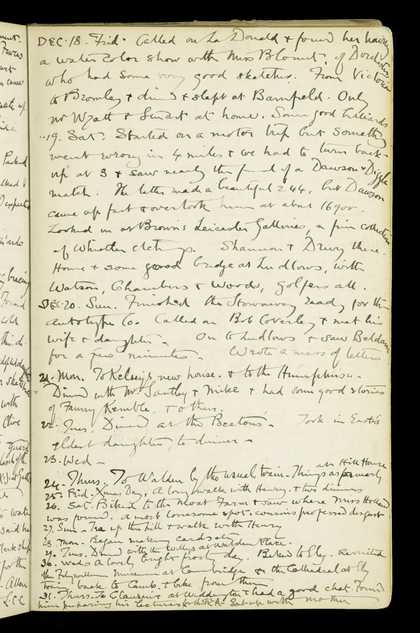 DEC. 18. Frid. Called on La Donald & found her having
a water color show with Miss Blount, of
who had some very good sketches. From Victoria
to Bromley & dined & slept at Bamfield. Only
Mr Wyatt & Smart at home. Some good billiards
19. Sat. Started on a motor trip but something
went wrong in 4 miles & we had to turn back
up at 3 & saw nearly the final of a Dawson & Diggle
match. The latter made a beautiful 244, but Dawson
came up fast & overtook him at about 16900.
Looked in at Brown's Leicester Galleries, a fine collection
of Whistler etchings. Shannon & Drury there.
Home & some good bridge at Ludlows, with
Watson, Chambers & Woods, golfers all.
DEC. 20. Sun. Finished the Stowaway ready for the
autotype Co. Called on Bob Coverley & met his
wife & daughter. On to Ludlows & saw
for a few minutes. Wrote a mass of letters
21. Mon. To Kelsey's new house & to the Humphreys.
Dined with Mr Santley & Mike & had some good stories
of Fanny Kemble & others.
22. Tues. Dined at the Beetons. Took in
eldest daughter to dinner.
23. Wed at Hill House
24. Thurs. To Walden by the usual train. Things as formerly
25. Frid. Xmas Day. A long walk with Henry & two dinners
26. Sat. Biked to the Moat Farm & saw where Miss Holland
was found, a most lonesome spot. Cousins professed disgust
27. Sun. Tea up the hill & walk with Henry
28. Mon. Began making cards
29. Tues. Dined with the at Walden Place.
30. Wed. a lovely bright frosty day. Biked to Ely. Revisited
the Fitzwilliam Museum at Cambridge & the Cathedral at Ely
Train back to Camb. & bike from there
31. Thurs. To Clausen's at Widdington & had a good chat. Found
him preparing his lectures for the R.A. Sat up with mother